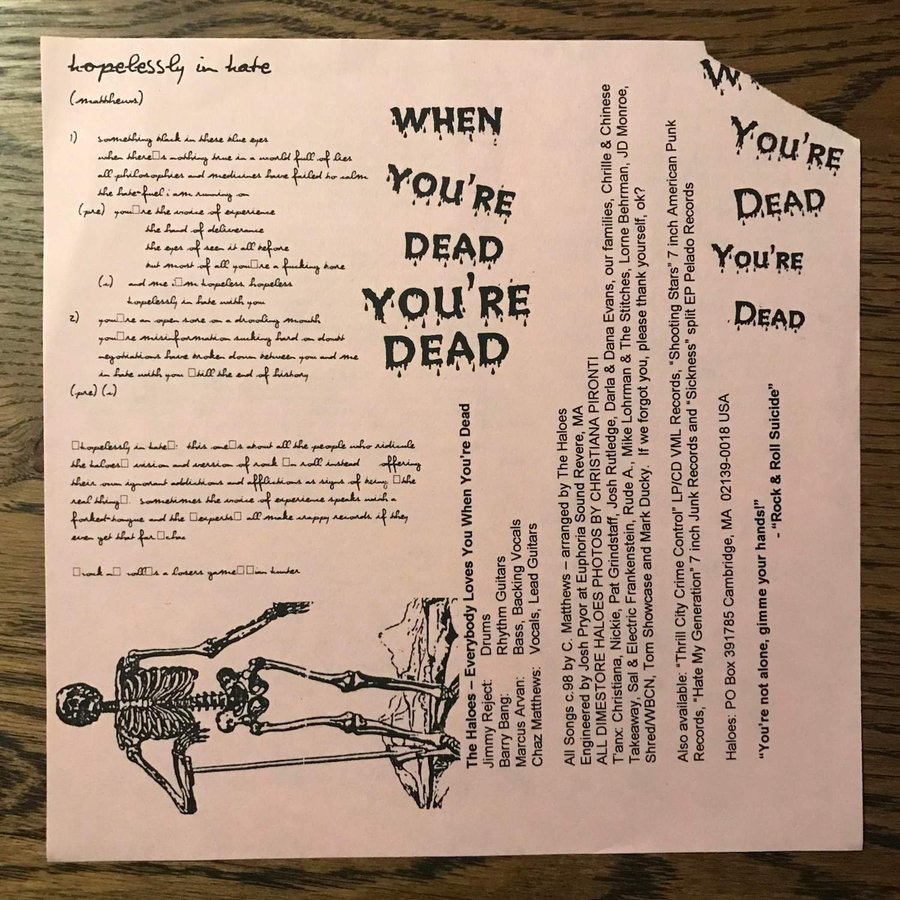 hopelessly in hate
(matthews)
1) something black in these blue eyes
when there□s nothing true in a world full of lies
all philosophies and medicines have failed to calm
the hate-fuel i am running on
(pre) you□re the voice of experience
the hand of deliverance
the eyes of seen it all before
but most of all you□re a fucking bore
(c) and me i□m hopeless hopeless
hopelessly in hate with you
2) you□re an open sore on a drooling mouth
you□re misinformation sucking hard on doubt
negotiations have broken down between you and me
in hate with you □till the end of history
(pre) (c)
□hopelessly in hate□: this one□s about all the people who ridicule
the haloes□ vision and version of rock □n roll instead offering
their own ignorant addictions and afflictions as signs of being □the
real thing□. sometimes the voice of experience speaks with a
forked-tongue and the □experts□ all make crappy records if they
even get that far□chaz
□rock n□ roll□s a losers game□□ian hunter
WHEN
YOU'RE
DEAD
YOU'RE
DEAD
The Haloes – Everybody Loves You When You're Dead
Jimmy Reject: Drums
Barry Bang: Rhythm Guitars
Marcus Arvan: Bass, Backing Vocals
Chaz Matthews: Vocals, Lead Guitars
All Songs c.98 by C. Matthews – arranged by The Haloes
Engineered by Josh Pryor at Euphoria Sound Revere, MA
ALL DIMESTORE HALOES PHOTOS BY CHRISTIANA PIRONTI
Tanx: Christiana, Nickie, Pat Grindstaff, Josh Rutledge, Darla & Dana Evans, our families, Chrille & Chinese
Takeaway, Sal & Electric Frankenstein, Rude A., Mike Lohrman & The Stitches, Lorne Behrman, JD Monroe,
Shred/WBCN, Tom Showcase and Mark Ducky. If we forgot you, please thank yourself, ok?
Also available: “Thrill City Crime Control” LP/CD VML Records, “Shooting Stars” 7 inch American Punk
Records, “Hate My Generation” 7 inch Junk Records and “Sickness” split EP Pelado Records
Haloes: PO Box 391785 Cambridge, MA 02139-0018 USA
“You're not alone, gimme your hands!”
- “Rock & Roll Suicide”
YOU'RE
DEAD
YOU'RE
DEAD